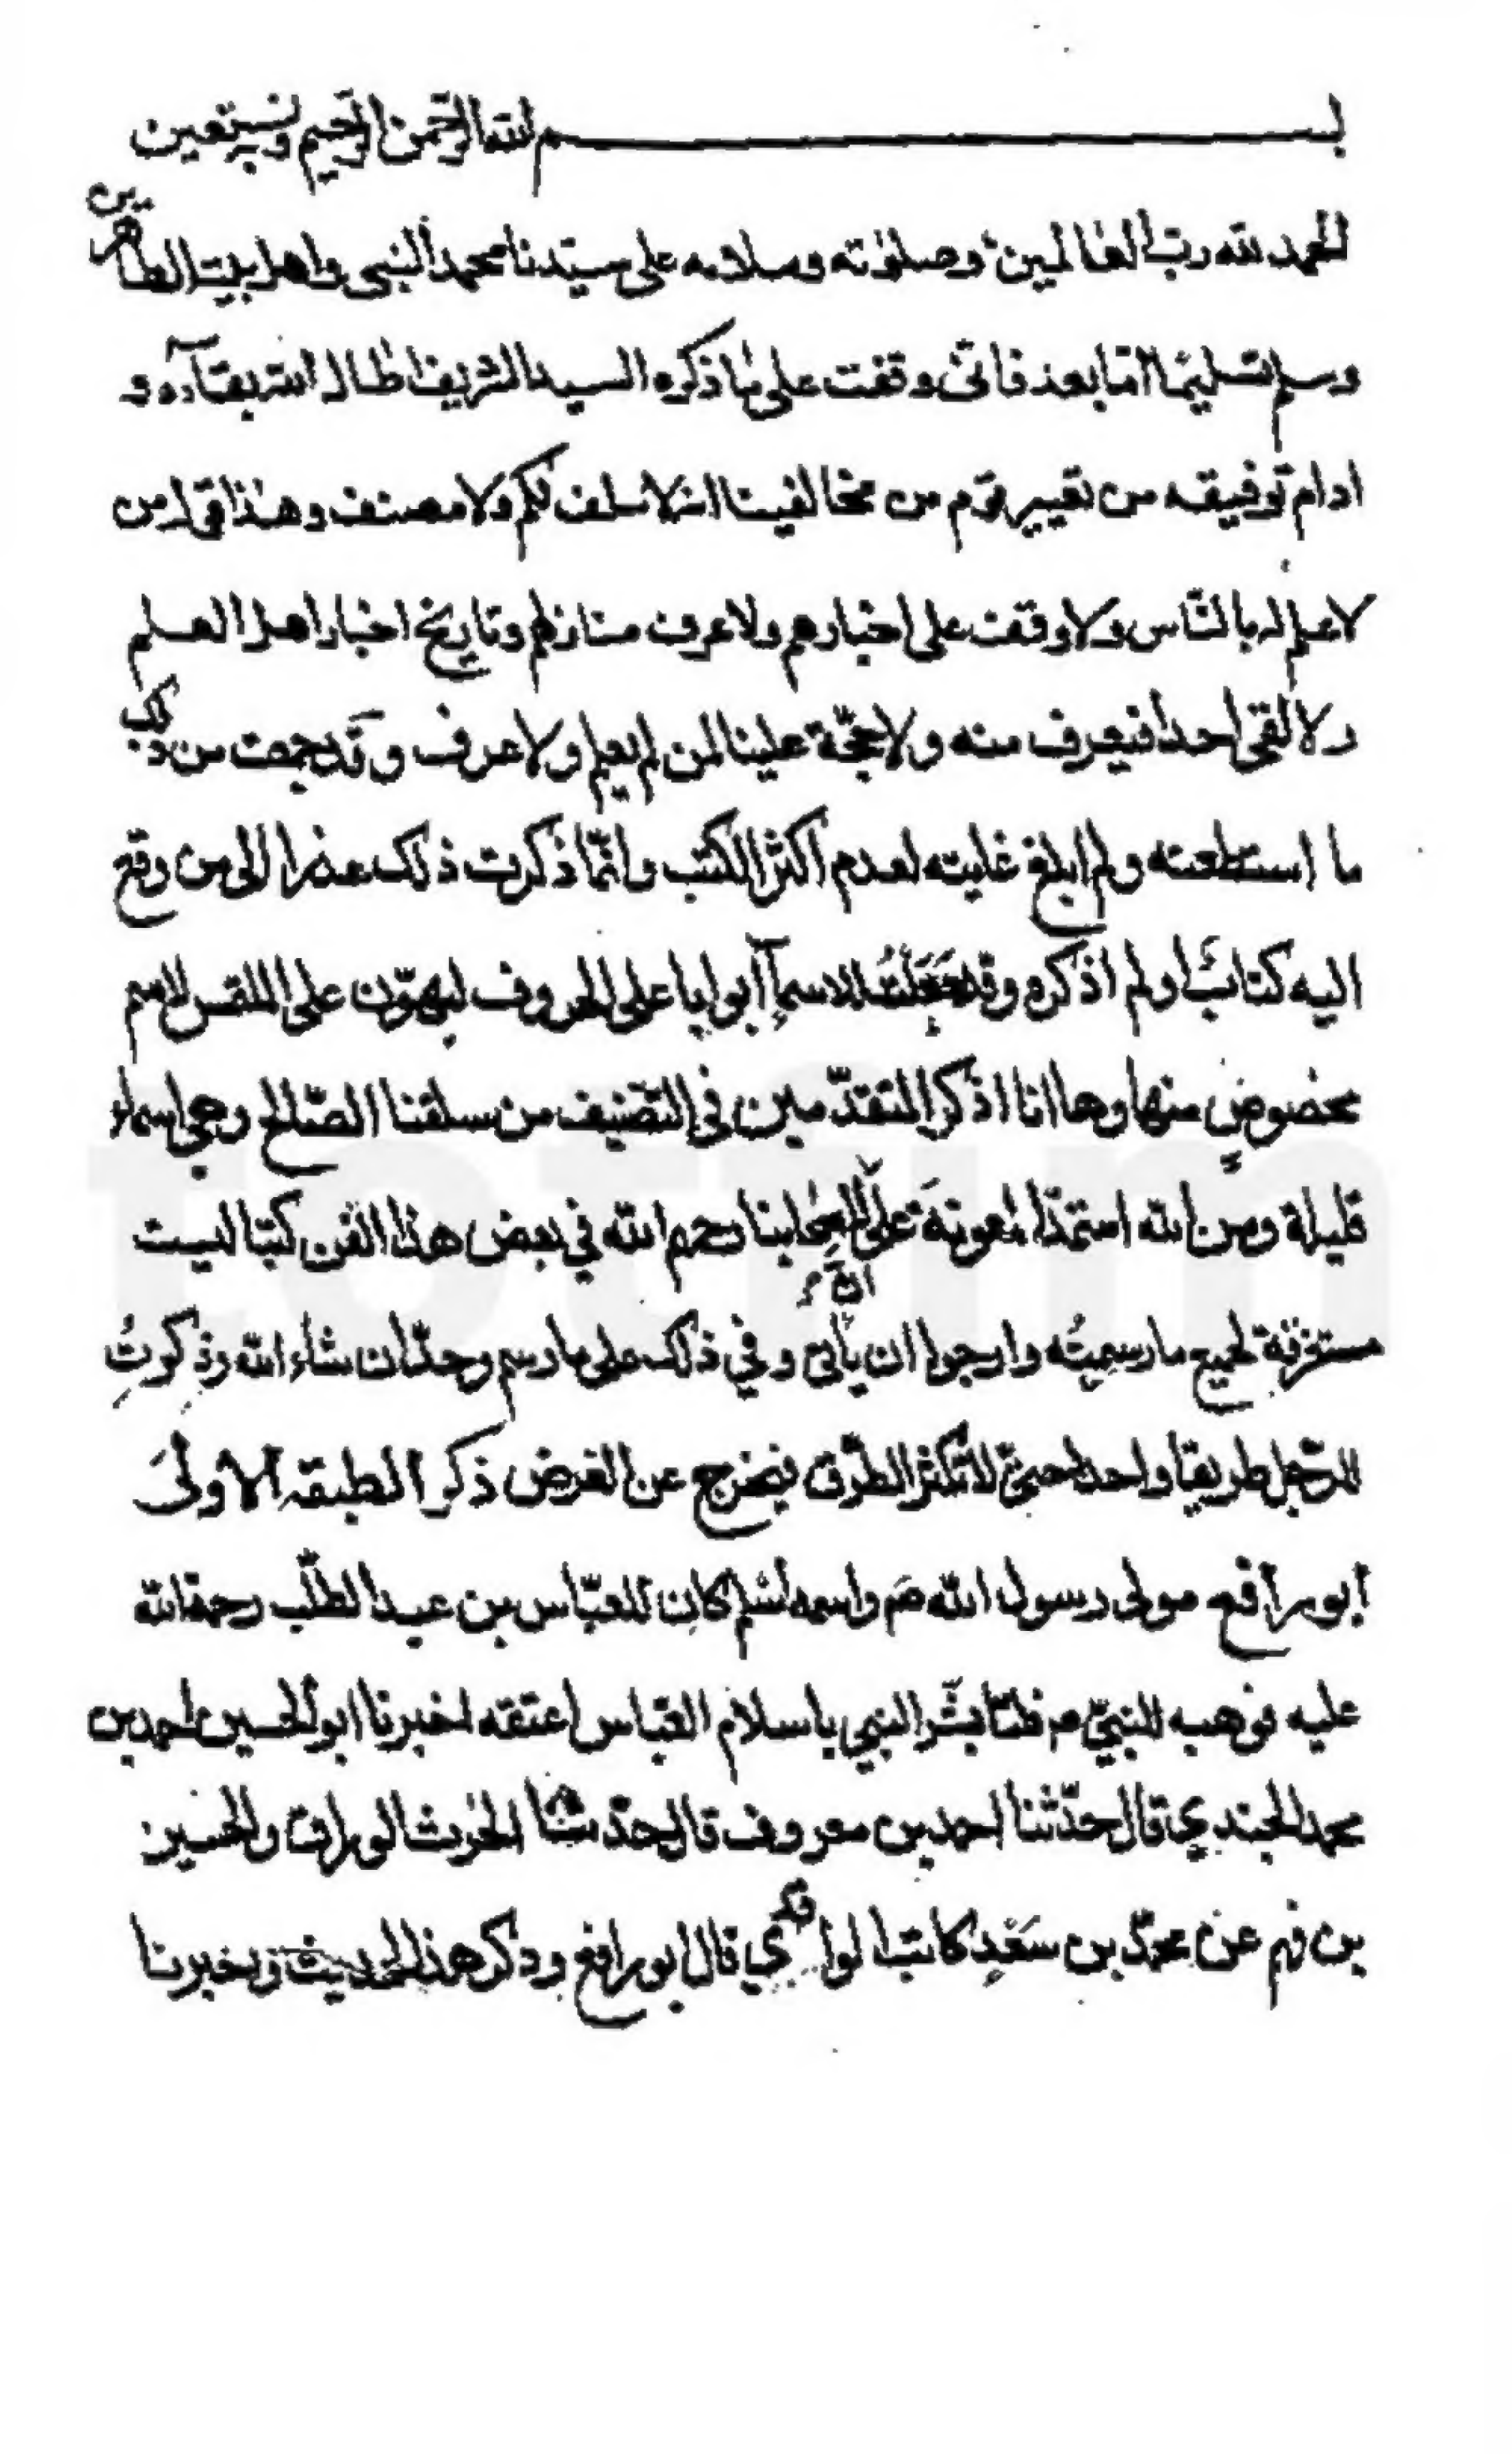 بسم الله الرحمن الرحيم وبه نستعين
الحمد لله رب العالمين وصلوته وسلامه على سيّدنا محمد النبي واهل بيته الطاهرين
وسلم تسليما امّا بعد فانّى وقفت على ما ذكره السيد الشريف اطال الله بقآءه و
ادام توفيقه من تعيير قوم من مخالفينا انه لا سلف لكم ولا مصنف وهذا قول من
لا علم له بالنّاس ولا وقف على اخبارهم ولا عرف منازلهم وتاريخ اخبار اهل العلم
ولا لقى احدا فيعرف منه ولا حجّة علينا لمن لم يعلم ولا عرف وقد جمعت من ذلك
ما استطعته ولم ابلغ غايته لعدم اكثر الكتب وانّما ذكرت ذلك عذرا الى من وقع
اليه كتابٌ لم اذكره وقد جَعَلتُ للاسمآء ابوابا على الحروف ليهوّن على الملتمس لاسم
مخصوصٍ منها وها انا اذكر المتقدّمين في التصنيف من سلفنا الصّالح وهي اسماء
قليلة ومن الله استمدّ المعونة على انّ لاصحابنا رحمهم الله في بعض هذا الفن كتبا ليست
مستغرقة لجميع ما رسميتُه وارجوا ان يأتى وفي ذلك على ما رسم وحدّ ان شاء الله وذكرتُ
للرّجل طريقا واحدا حتىّ لا تكثر الطّرق فيخرج عن الغرض ذكر الطبقه الاولىَ
ابو رافع مولى رسول الله صَم واسمه اسْلم كان للعبّاس بن عبد المطّلب رحمة الله
عليه فوهبه للنبيّ صم فلمّا بشّر النبي باسلام العبّاس اعتقه اخبرنا ابو الحسين احمد بن
محمد الجندي قال حدّثنا احمد بن معروف قال حدّثنا الحرث الوراق والحسين
بن فهم عن محمّد بن سَعْدٍ كاتب الواقدي قال ابو رافع وذكر هذا الحديث واخبرنا